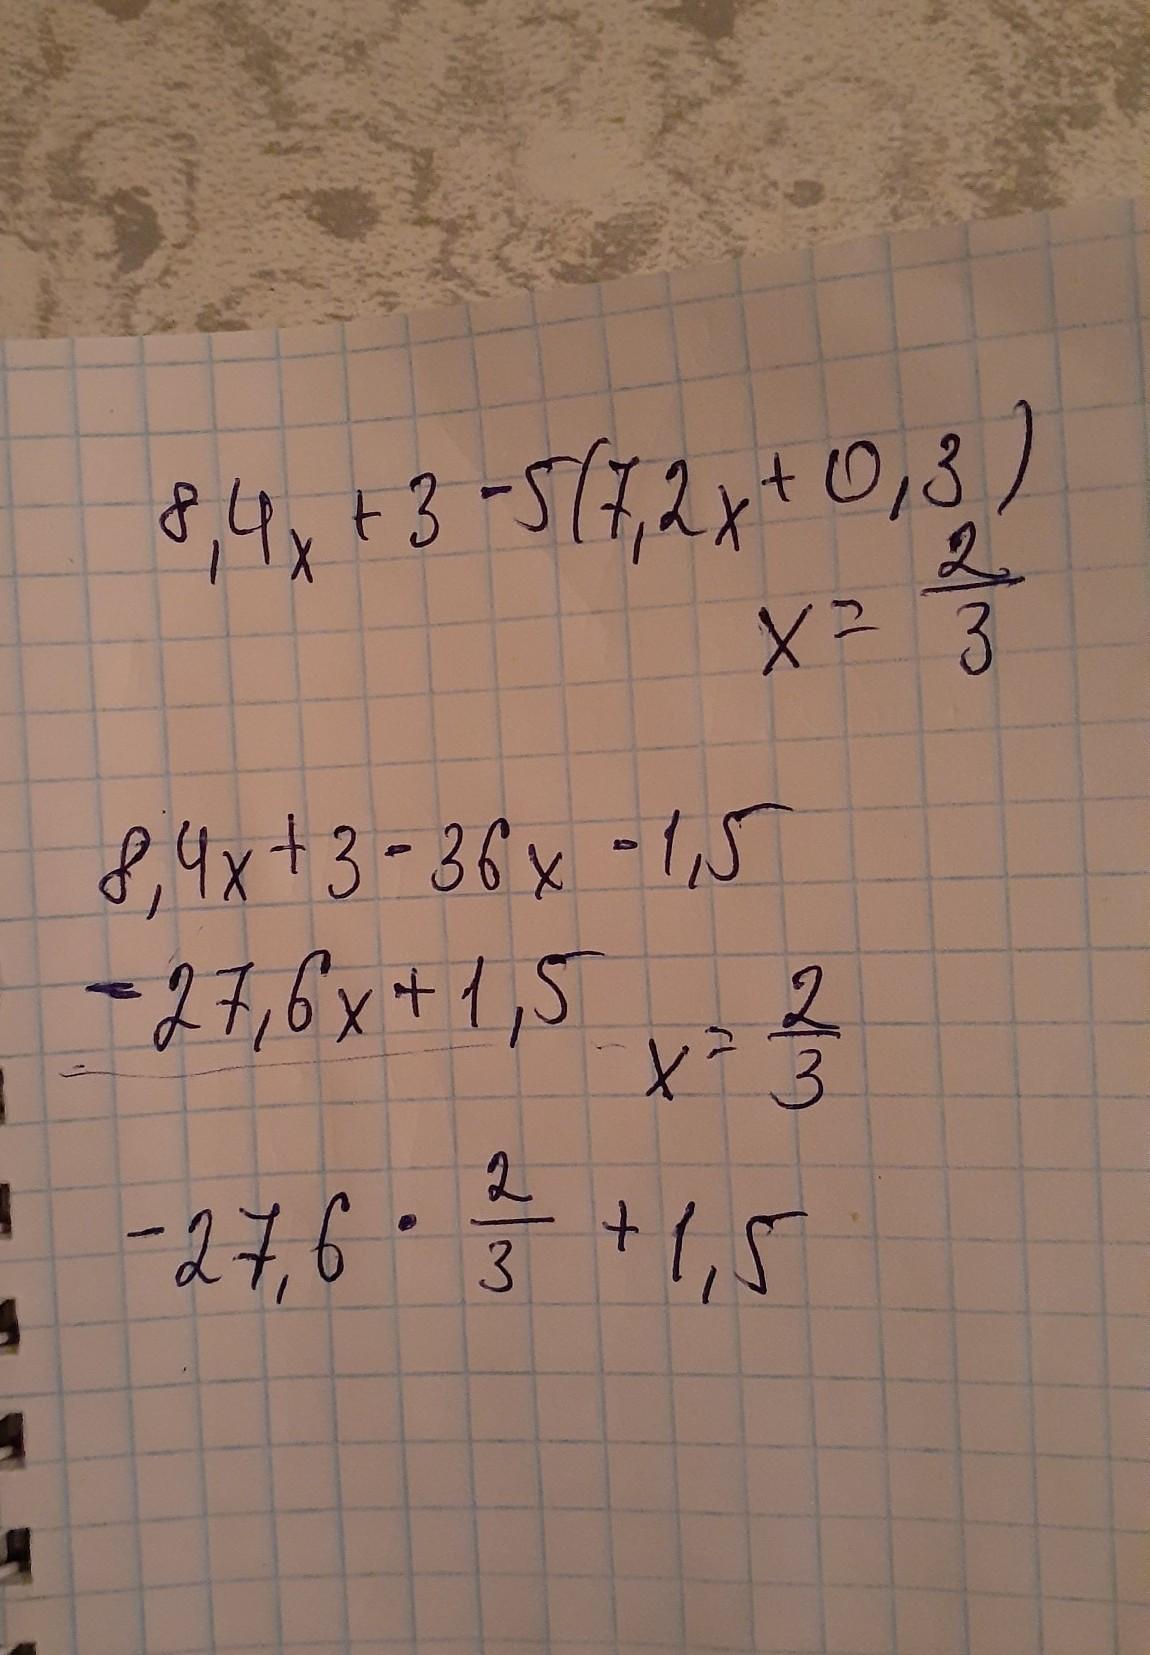 8,4x + 3 - 5(7,2x + 0,3)
x = 2/3
8,4x + 3 - 36x - 1,5
- 27,6x + 1,5 x = 2/3
- 27,6 · 2/3 + 1,5